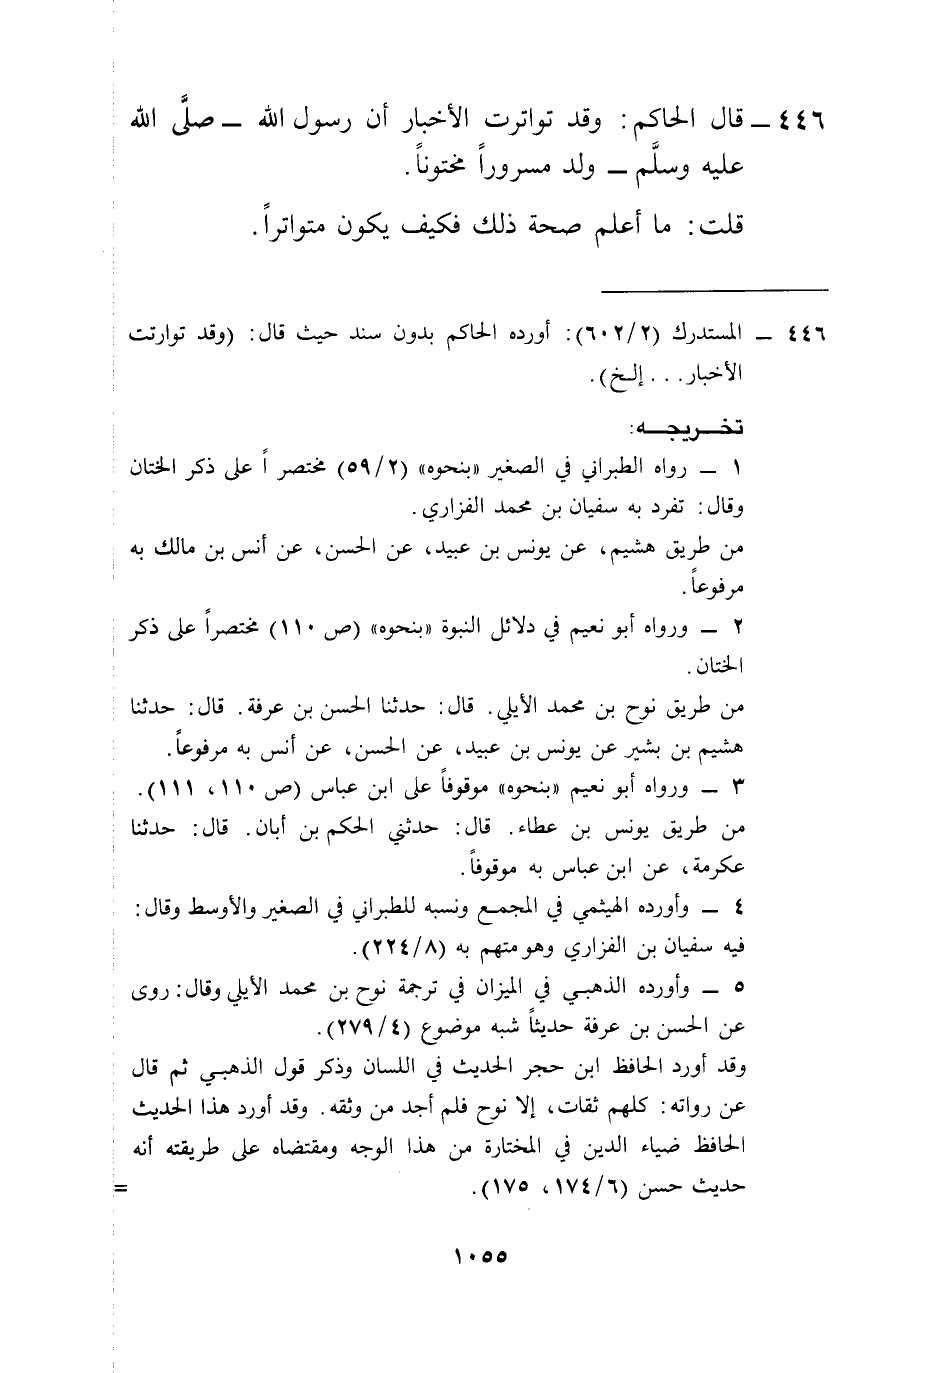 ٤٤٦ ـ قال الحاكم: وقد تواترت الأخبار أن رسول الله ـ صلَّى الله
عليه وسلَّم ـ ولد مسروراً مختوناً.
قلت: ما أعلم صحة ذلك فكيف يكون متواتراً.
٤٤٦ ـ المستدرك (٦٠٢/٢): أورده الحاكم بدون سند حيث قال: (وقد توارتت
الأخبار... إلخ).
تخـــريجـــه:
١ ـ رواه الطبراني في الصغير «بنحوه» (٥٩/٢) مختصر اً على ذكر الختان
وقال: تفرد به سفيان بن محمد الفزاري.
من طريق هشيم، عن يونس بن عبيد، عن الحسن، عن أنس بن مالك به
مرفوعاً.
٢ ـ ورواه أبو نعيم في دلائل النبوة «بنحوه» (ص ١١٠) مختصراً على ذكر
الختان.
من طريق نوح بن محمد الأيلي. قال: حدثنا الحسن بن عرفة. قال: حدثنا
هشيم بن بشير عن يونس بن عبيد، عن الحسن، عن أنس به مرفوعاً.
٣ ـ ورواه أبو نعيم «بنحوه» موقوفاً على ابن عباس (ص ١١٠، ١١١).
من طريق يونس بن عطاء. قال: حدثني الحكم بن أبان. قال: حدثنا
عكرمة، عن ابن عباس به موقوفاً.
٤ ـ وأورده الهيثمي في المجمع ونسبه للطبراني في الصغير والأوسط وقال:
فيه سفيان بن الفزاري وهو متهم به (٢٢٤/٨).
٥ ـ وأورده الذهبي في الميزان في ترجمة نوح بن محمد الأيلي وقال: روى
عن الحسن بن عرفة حديثاً شبه موضوع (٢٧٩/٤).
وقد أورد الحافظ ابن حجر الحديث في اللسان وذكر قول الذهبي ثم قال
عن رواته: كلهم ثقات، إلا نوح فلم أجد من وثقه. وقد أورد هذا الحديث
الحافظ ضياء الدين في المختارة من هذا الوجه ومقتضاه على طريقته أنه
حديث حسن (١٧٤/٦، ١٧٥). =
١٠٥٥